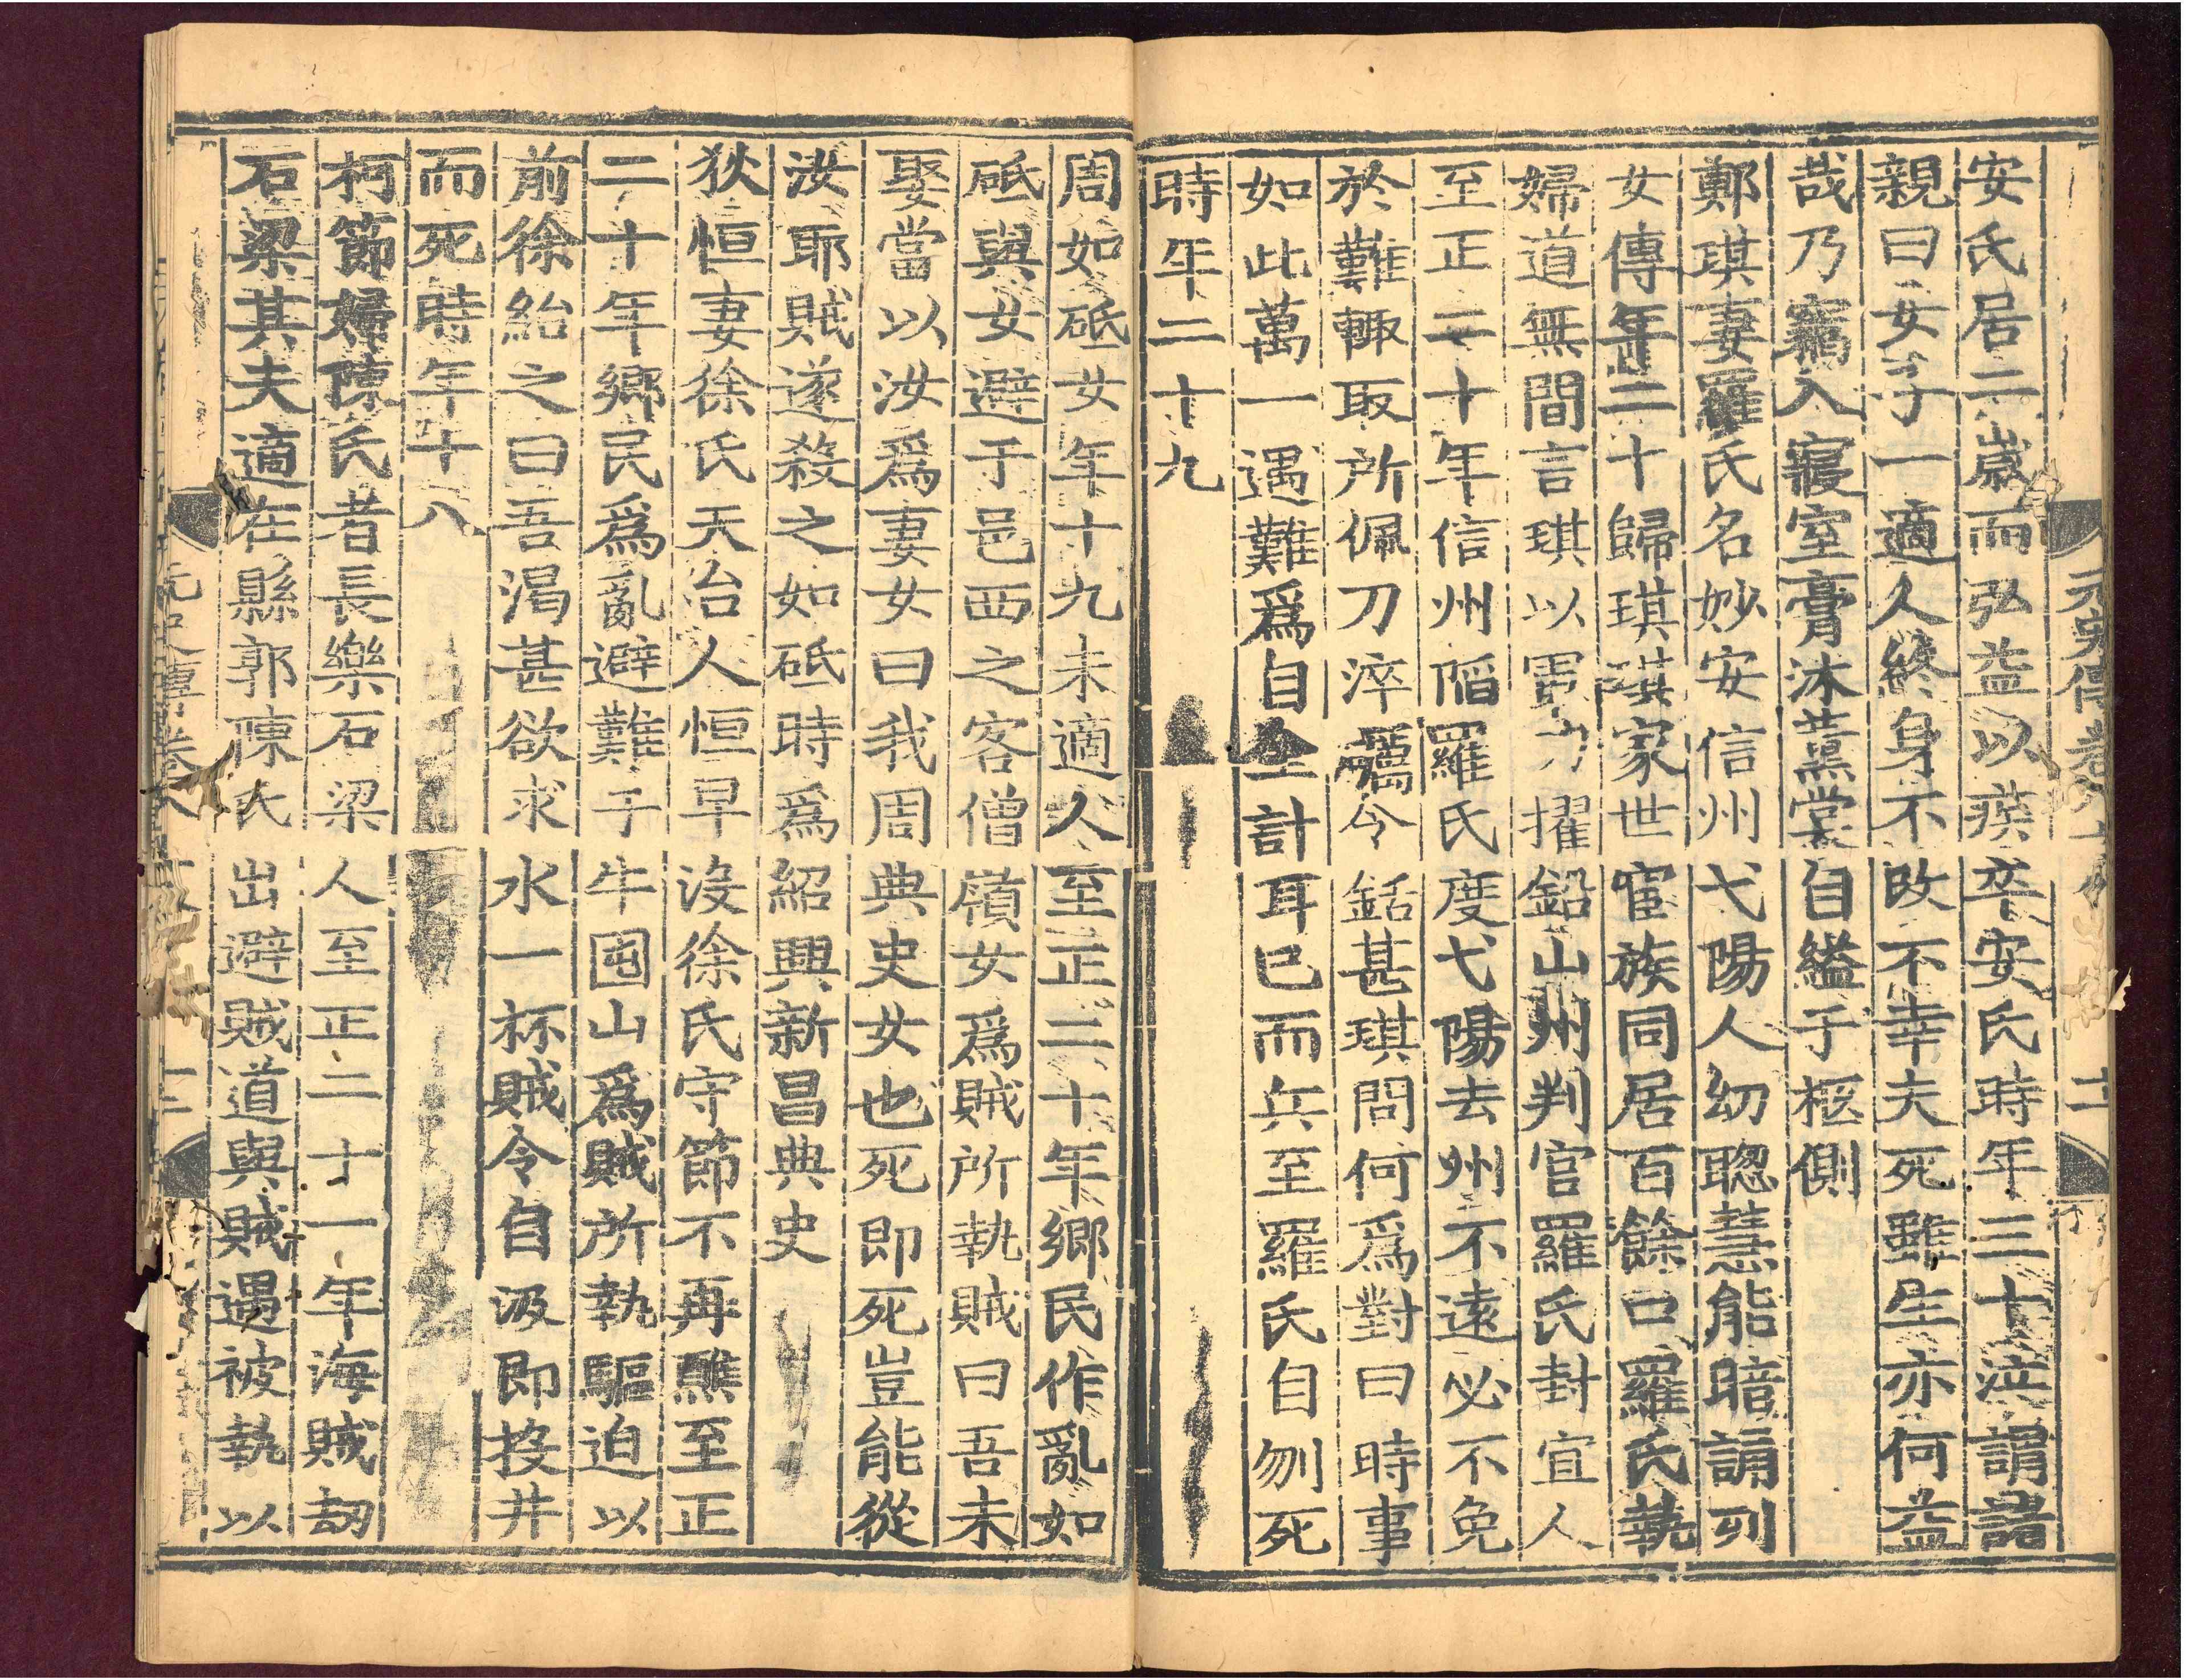 安氏居二歲而弘益以疾卒安氏時年三十泣謂諸
親曰女子一適人終身不改不幸夫死雖生亦何益
哉乃竊入寢室膏沐薰裳自縊于柩側
鄭琪妻羅氏名妙安信州弋陽人幼聰慧能暗誦列
女傳年二十歸琪琪家世宦族同居百餘口羅氏執
婦道無間言琪以軍功擢鉛山州判官羅氏封宜人
至正二十年信州陷羅氏度弋陽去州不遠必不免
於難輙取所佩刀淬礪令銛甚琪問何爲對曰時事
如此萬一遇難爲自全計耳已而兵至羅氏自刎死
時年二十九
周如砥女年十九未適人至正二十年鄉民作亂如
砥與女避于邑西之客僧嶺女爲賊所執賊曰吾未
娶當以汝爲妻女曰我周典史女也死即死豈能從
汝耶賊遂殺之如砥時爲紹興新昌典史
狄恒妻徐氏天台人恒早沒徐氏守節不再醮至正
二十年鄉民爲亂避難于牛囤山爲賊所執驅迫以
前徐紿之曰吾渴甚欲求水一杯賊令自汲即投井
而死時年十八
柯節婦陳氏者長樂石梁人至正二十一年海賊劫
石梁其夫適在縣郭陳氏出避賊道與賊遇被執以